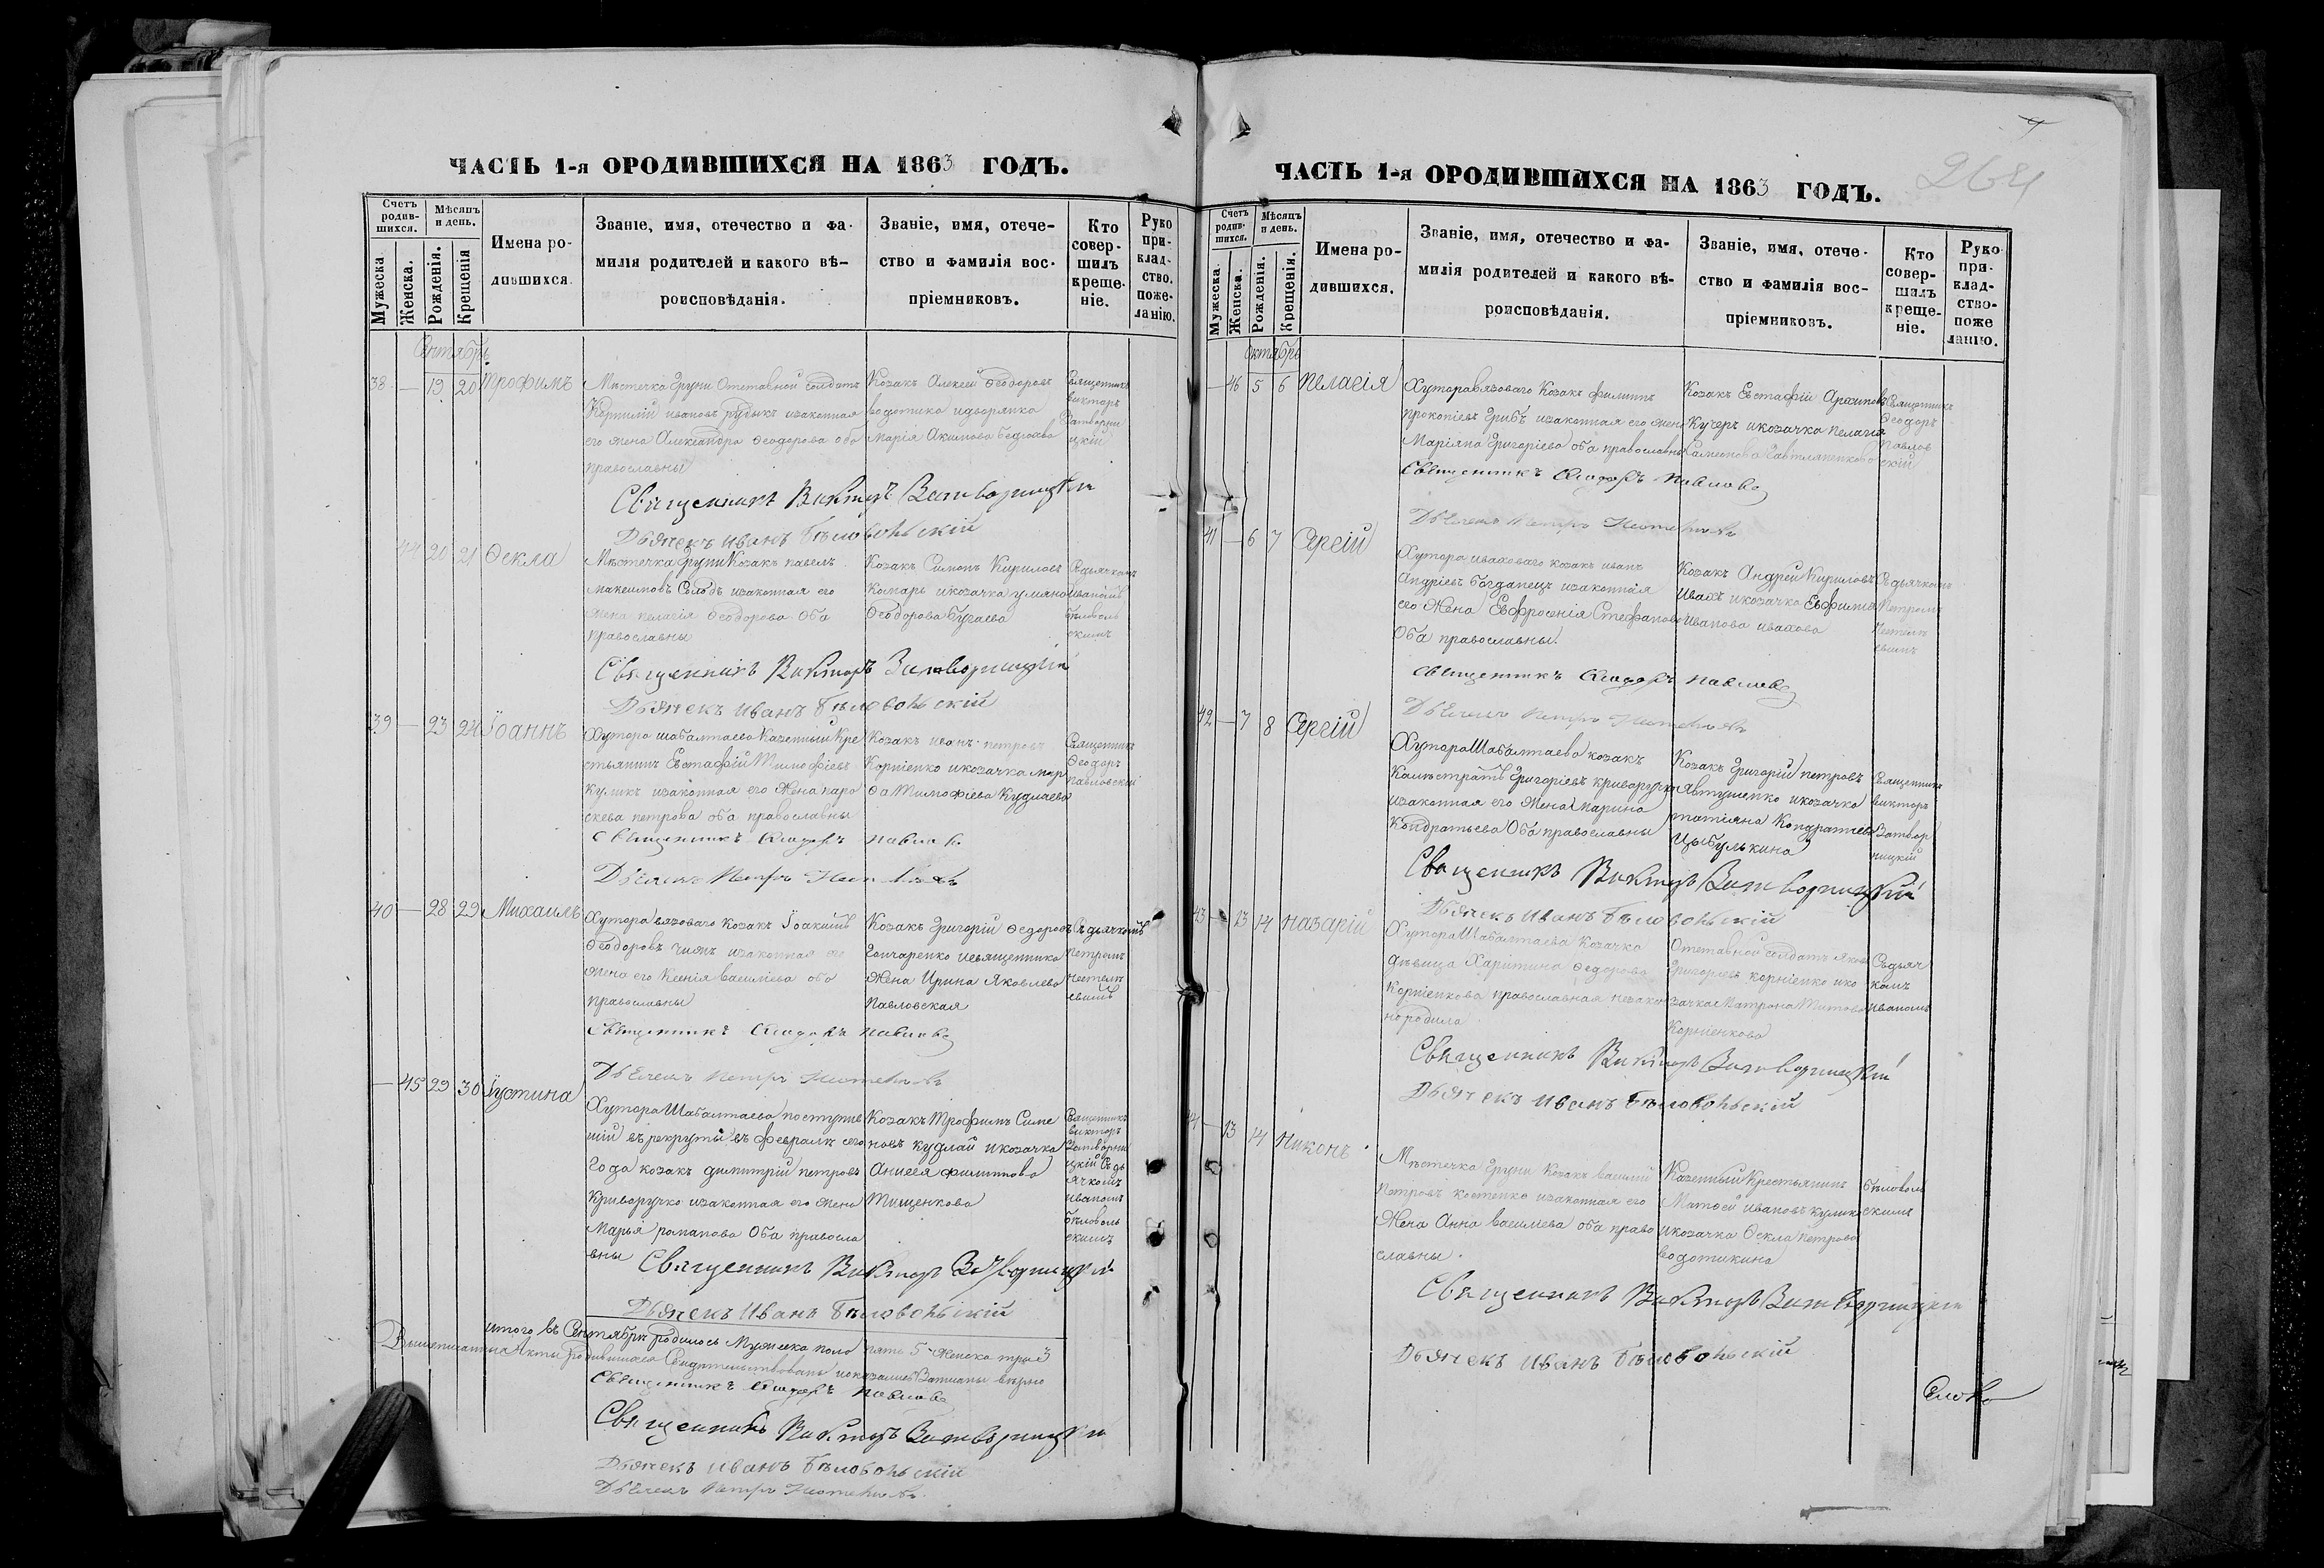 ЧАСТЬ 1-я ОРОДИВШИХСЯ НА 1863 ГОДЪ.
Счетъ родив-шихся.
Мѣсяцъ и день.
Мужеска.
Женска.
Рожденія.
Крещенія
Имена ро-
дившихся.
Званіе, имя, отечество и фа-
милія родителей и какого вѣ-
роисповѣданія.
Званіе, имя, отече-
ство и фамилія вос-
пріемниковъ.
Кто
совер-
шилъ
креще-
ніе.
Руко
при-
клад-
ство.
поже-
ланію.
Сентябрь
38 — 19 20 Трофимъ
Мѣстечка Груни Отставной солдатъ
Корнилій ивановъ рудыкъ изаконная
его жена Александра Феодорова оба
православны
Козакъ Алексей Феодоровъ
водотика идворянка
Марія Акимова
Священникъ
викторъ
Затворни
цкій
Священникъ Викторъ Затворницкій
Дьячекъ Иванъ Бѣловольскій
44 20 21 Фекла
Мѣстечка Груни Козакъ павелъ
максимовъ изаконная его
жена пелагія Феодорова Оба
православны
Козакъ Симонъ Кириловъ
Комаръ икозачка
Феодорова бугаева
Съдьячкомъ
иваномъ
бѣловоль
скимъ
Священникъ Викторъ Затворницкій
Дьячекъ Иванъ Бѣловольскій
39 — 23 24 Іоаннъ
Хутора шабалтаева Казенный Кре
стьянинъ Евстафій Тимофіевъ
Куликъ изаконная его Жена паро
скева петрова оба православны
Козакъ иванъ петровъ
Корніенко икозачка мар
фа Тимофіева Кудлаева
Священникъ
Феодоръ
павловскій
Священникъ Феодоръ Павлов
Дьячекъ Петръ
40 — 28 29 Михаилъ
Хутора вязоваго Козакъ Іоакимъ
Феодоровъ изаконная
жена его Ксенія василіева оба
православны
Козакъ Григорій Федоровъ
Гончаренко исвященника
Жена Ирина Яковлева
Павловская
Съдьячкомъ
петромъ
Священникъ Феодоръ Павлов
Дьячекъ Петръ
— 45 29 30 Іустина
Хутора Шабалтаева поступив
шій въ рекруты въ февралѣ сего
года козакъ димитрій петровъ
Криворучко изаконная его жена
Марья романова Оба правосла
вны
Козакъ Трофимъ Симе
новъ кудлай икозачка
Анисея филипова
Тищенкова
Священникъ
викторъ
Затворни
цкій Съдь
ячкомъ
иваномъ
бѣловоль
скимъ
Священникъ Викторъ Затворницкій
Дьячекъ Иванъ Бѣловольскій
итого въ Сентябрѣ родилось Мужеска пола пять 5 Женска три 3
Священникъ Феодоръ Павлов
Священникъ Викторъ Затворницкій
Дьячекъ Иванъ Бѣловольскій
Дьячекъ Петръ
264
ЧАСТЬ 1-я ОРОДИВШИХСЯ НА 1863 ГОДЪ.
Счетъ родив-шихся.
Мѣсяцъ и день.
Мужеска.
Женска.
Рожденія.
Крещенія.
Имена ро-
дившихся.
Званіе, имя, отечество и фа-
милія родителей и какого вѣ-
роисповѣданія.
Званіе, имя, отече-
ство и фамилія вос-
пріемниковъ.
Кто
совер-
шилъ
креще-
ніе.
Руко
при-
клад-
ство-
поже
ланію.
Октябрь
— 46 5 6 Пелагія
Хутора вязоваго Козакъ филипъ
прокопіевъ Грибъ изаконная его жена
Маріяна Григоріева оба православны
Козакъ Евстафій Архиповъ
Кучеръ икозачка пелагія
Священникъ
Феодоръ
Павлов
скій
Священникъ Феодоръ Павлов
Дьячекъ Петръ
41 — 6 7 Сергій
Хутора иваховаго козакъ иванъ
Андріевъ богданецъ изаконная
его Жена Евфросенія Стефанова
Оба православны
Козакъ Андрей Кириловъ
Ивахъ икозачка Евфимія
Иванова ивахова
Съдьячкомъ
Петромъ
Священникъ Феодоръ Павлов
Дьячекъ Петръ
42 — 7 8 Сергій
Хутора Шабалтаева козакъ
Калистратъ Григоріевъ криворучко
изаконная его Жена Марина
Кондратьева Оба православны
Козакъ Григорій петровъ
Явтушенко икозачка
татіяна Кондратиева
Цыбулькина
Священникъ
викторъ
Затвор
ницкій
Священникъ Викторъ Затворницкій
Дьячекъ Иванъ Бѣловольскій
43 — 13 14 Назарій
Хутора Шабалтаева Козачка
дѣвица Харитина Федорова
Корніенкова православная незакон
но родила
Отставной солдатъ Яковъ
Григоріевъ корніенко ико
зачка Матрона Титова
Корніенкова
Съдьяч
комъ
иваномъ
Священникъ Викторъ Затворницкій
Дьячекъ Иванъ Бѣловольскій
44 — 13 14 Никонъ
Мѣстечка Груни Козакъ василій
Петровъ костенко изаконная его
Жена Анна василіева оба право
славны.
Казенный Крестьянинъ
Матфей ивановъ кулик
икозачка Фекла петрова
водотикина
бѣловоль
скимъ
Священникъ Викторъ Затворницкій
Дьячекъ Иванъ Бѣловольскій